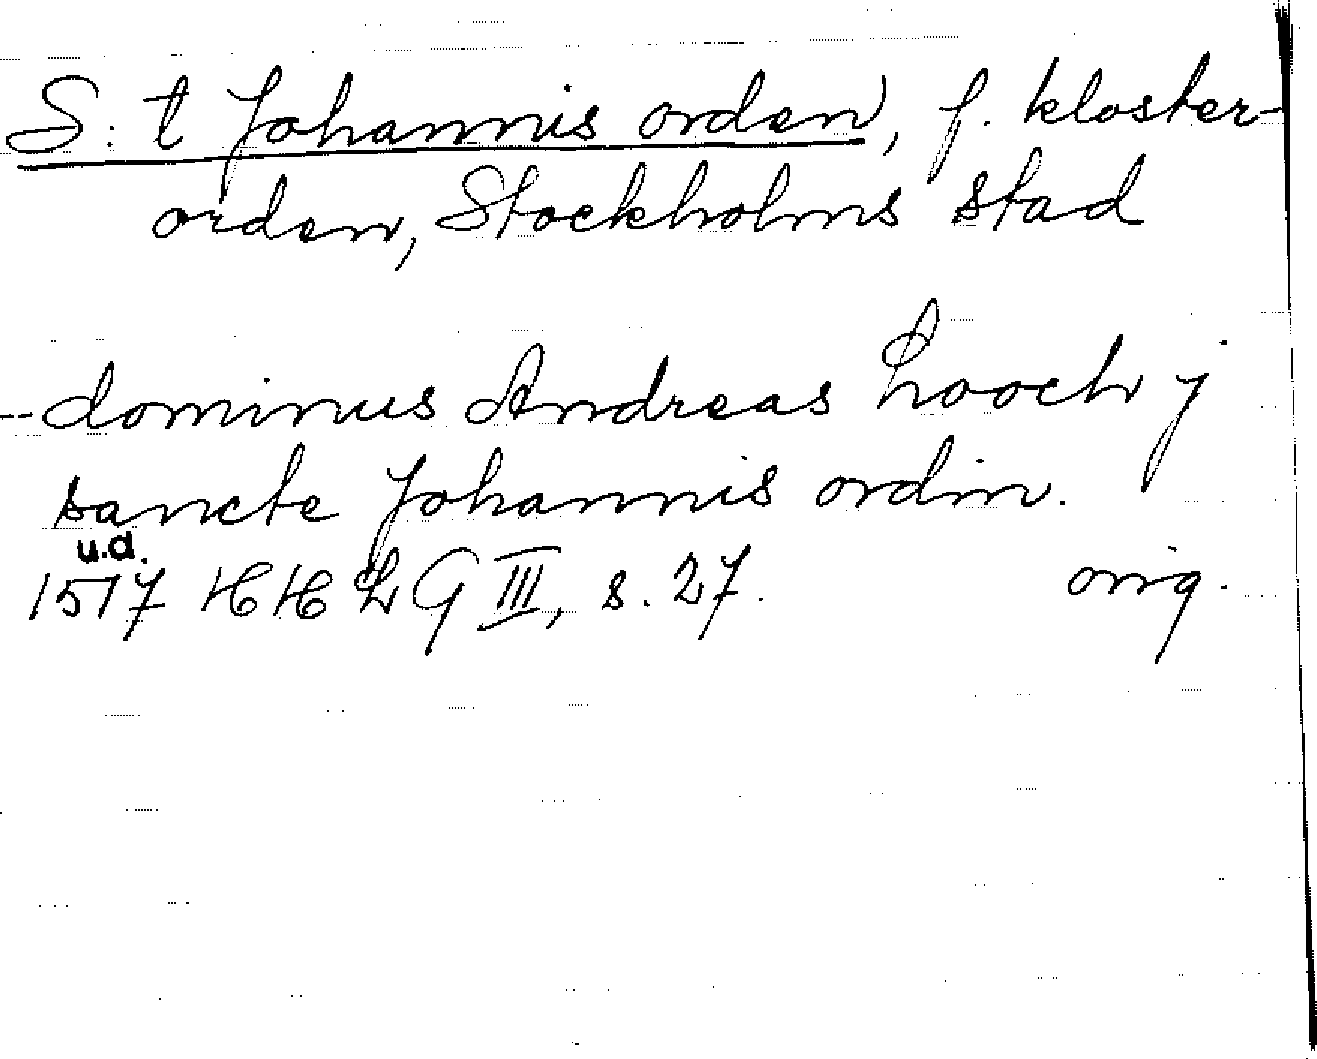 S:t Johannis orden, f. kloster-
orden, Stockholms stad
dominus Andreas hooch j
sancte Johannis ordin.
u.d.
1517 HH LG III, s. 27. orig.